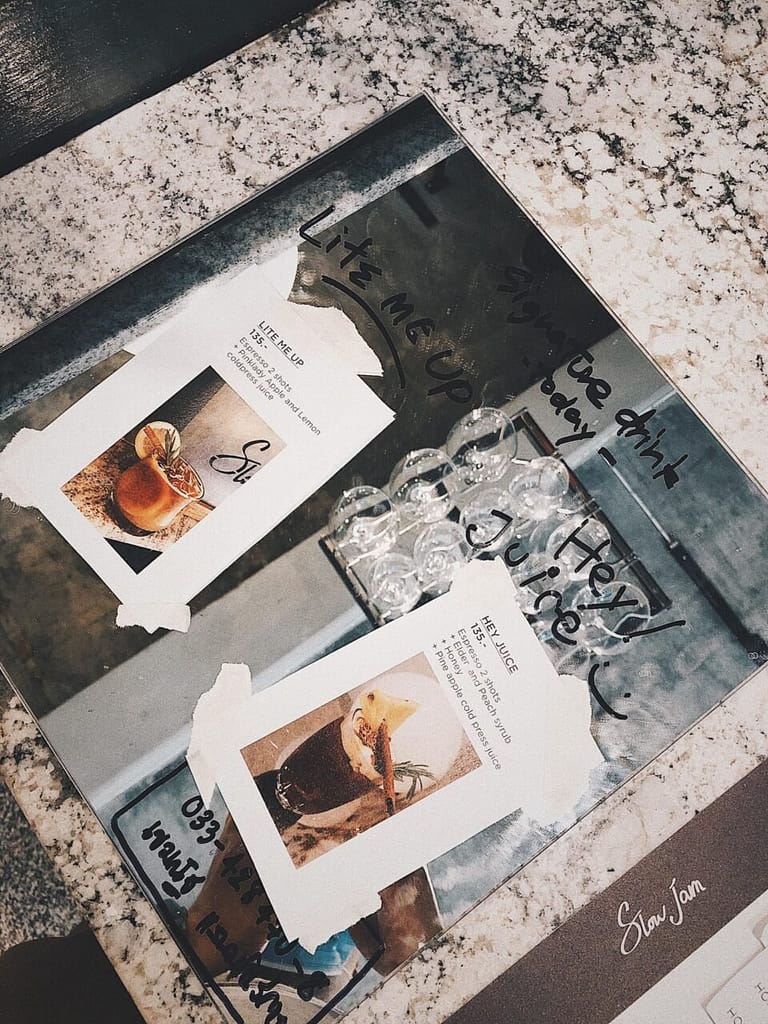 Signature drink
today -
LitE ME UP
LITE ME UP
135.-
Espresso 2 shots
+ Pinklady Apple and Lemon
coldpress juice
Hey!
Juice
HEY JUICE
135.-
Espresso 2 shots
+ Elder and Peach syrub
+ Honey
+ Pine apple cold press juice
Slow Jam